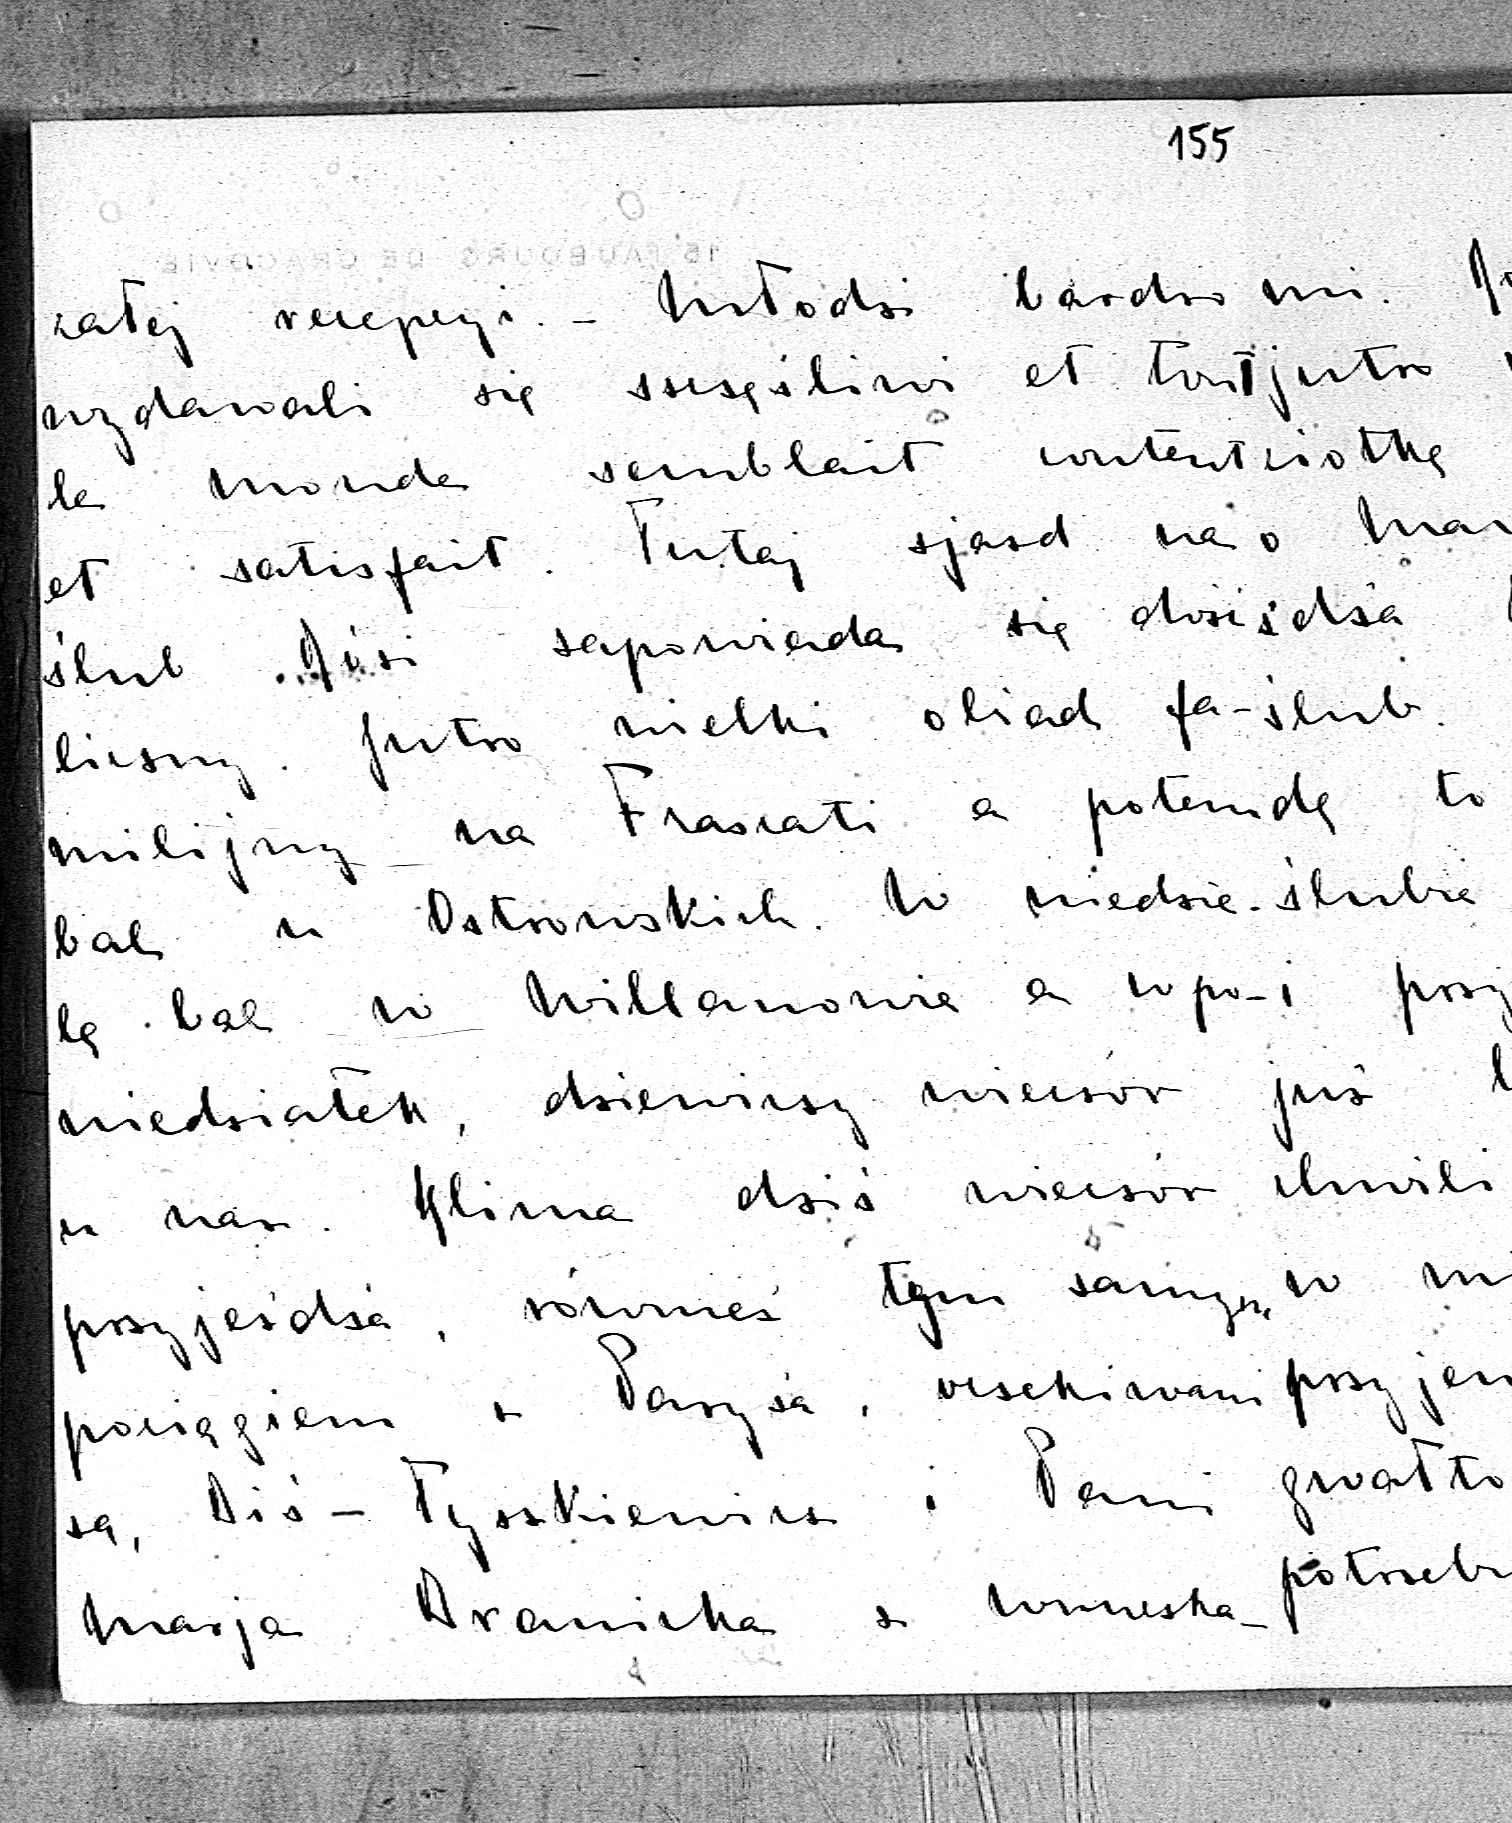 155
15 FAUBOURG DE CRACOVIE
całej recepcyi. – Młodzi bardzo mi.
wydawali się szczęśliwi et tout jutro
le monde semblait content ciotkę
et satisfait. Tutaj zjazd na o
ślub zapowiada się
liczny. Jutro wielki obiad fa- ślub.
milijny na Frascati a potem dę to
bal u Ostrowskich. W niedzie- ślubie
lę bal w Willanowie a w po- i przy
niedziałek, dziewiczy wieczór już
u nas. Klima dziś wieczór chwili
przyjeżdża, również tym samym w
pociągiem z Paryża, oczekiwani przyjem
są, Biś – Tyszkiewicz i Pani gwałto
Marja Branicka z wnuczka- potrzeb